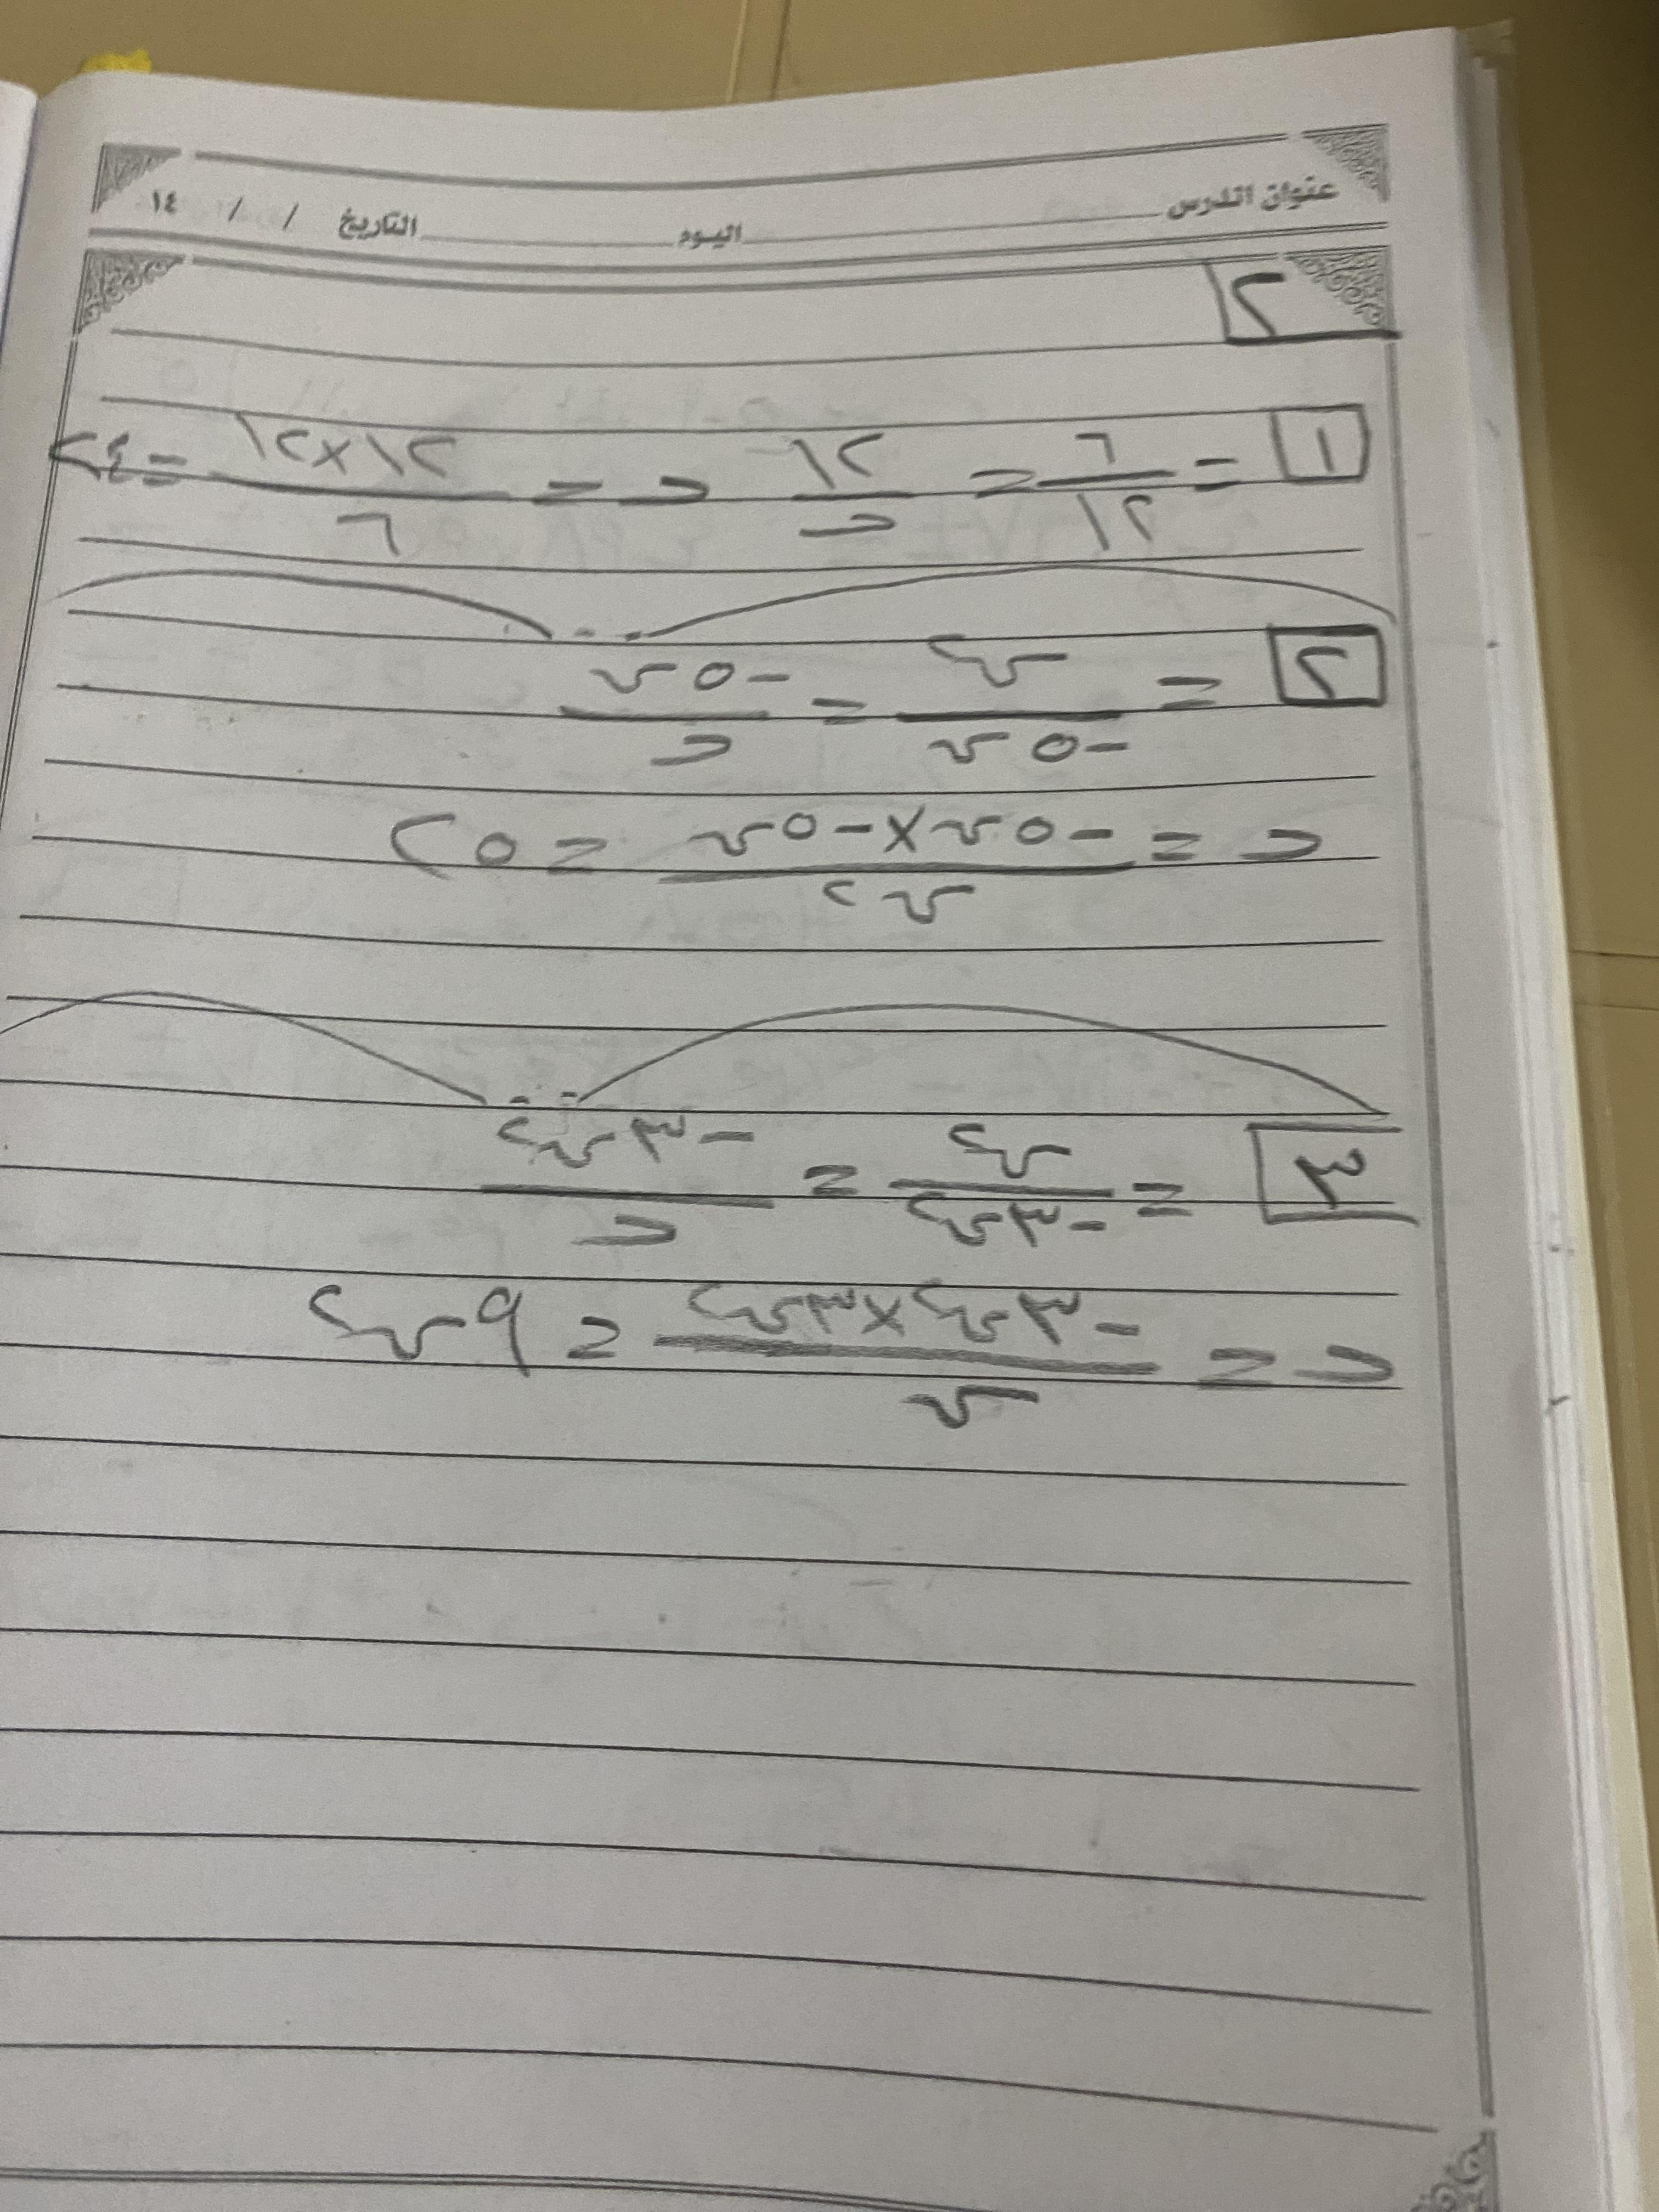 عنوان الدرس اليوم التاريخ / / ١٤
٢
١ = ٦/١٢ = ١٢/ح ح = ١٢×١٢/٦ = ٢٤
٢ = س٢/-٥س = -٥س/ح
ح = -٥س×-٥س/س٢ = ٢٥
٣ = س٢/-٣س٢ = -٣س٢/ح
ح = -٣س٢×٣س٢/س = ٩س٢